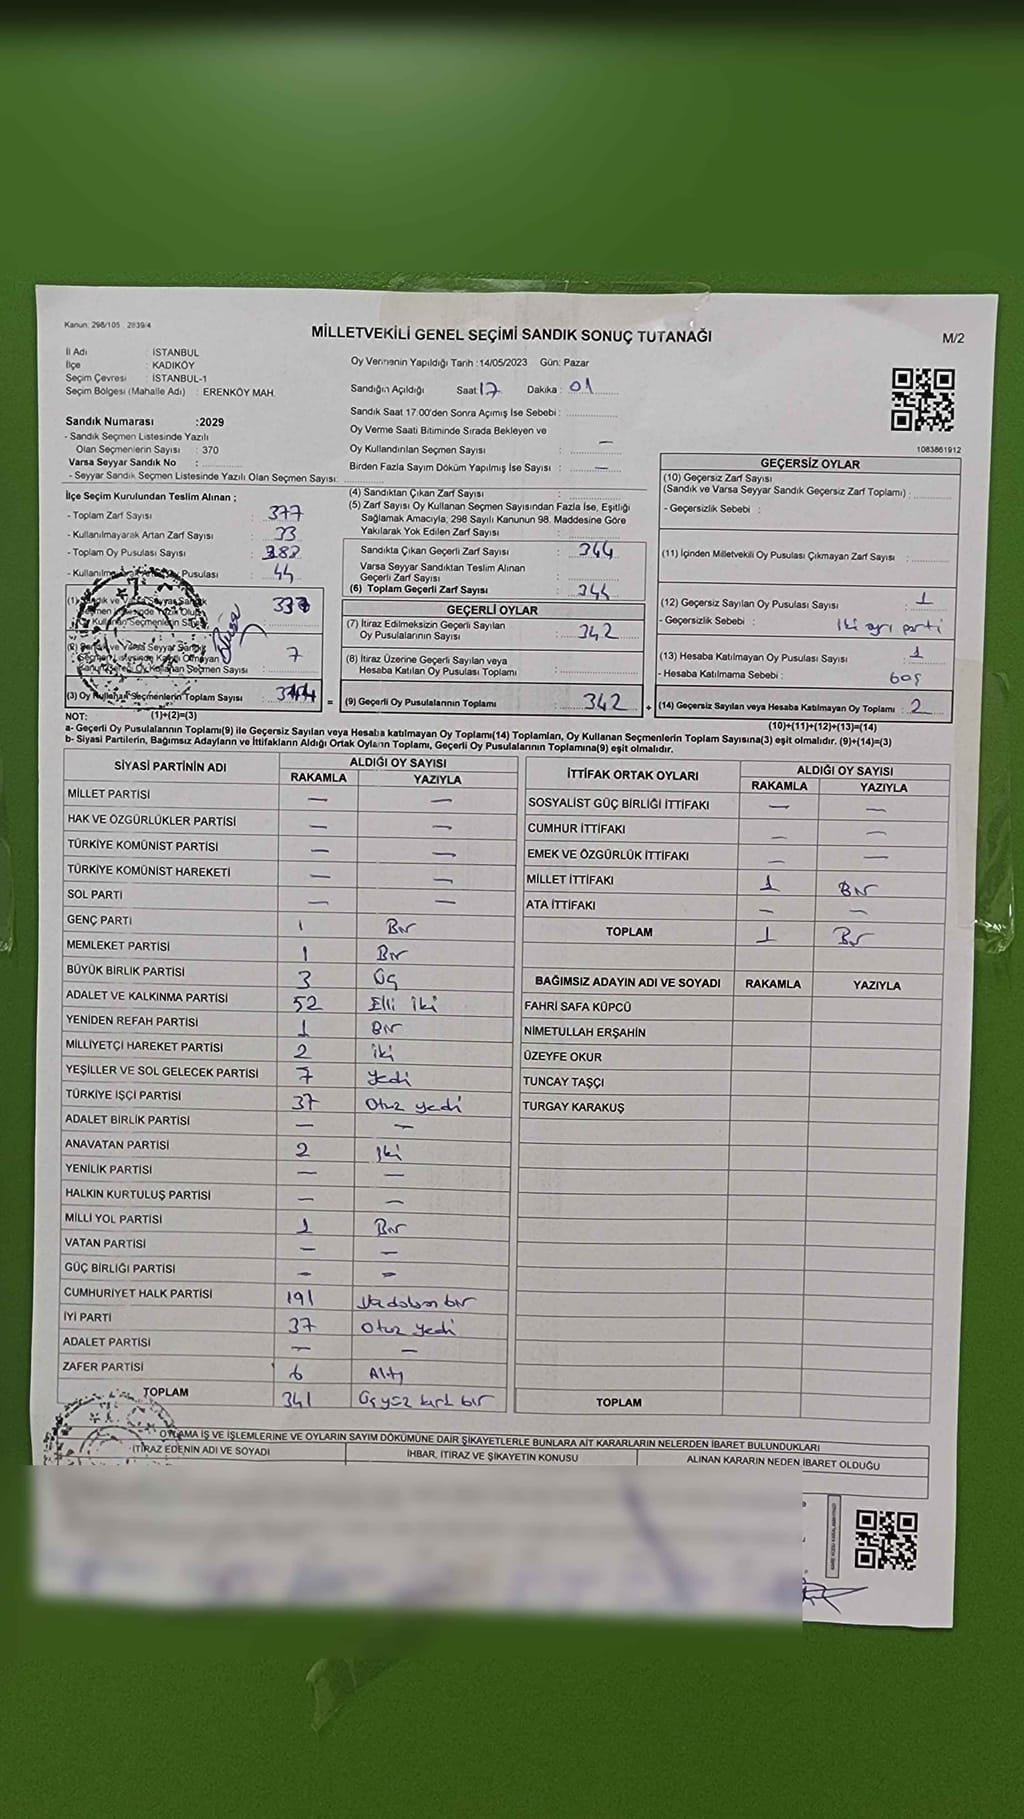 Kanun: 298/105 , 2839/4
MİLLETVEKİLİ GENEL SEÇİMİ SANDIK SONUÇ TUTANAĞI
M/2
İl Adı : İSTANBUL
İlçe : KADIKÖY
Seçim Çevresi : İSTANBUL-1
Seçim Bölgesi (Mahalle Adı) : ERENKÖY MAH.
Sandık Numarası :2029
- Sandık Seçmen Listesinde Yazılı
Olan Seçmenlerin Sayısı : 370
Varsa Seyyar Sandık No :
- Seyyar Sandık Seçmen Listesinde Yazılı Olan Seçmen Sayısı:
Oy Vermenin Yapıldığı Tarih :14/05/2023 Gün: Pazar
Sandığın Açıldığı Saat: 17 Dakika : 01
Sandık Saat 17.00'den Sonra Açılmış İse Sebebi :
Oy Verme Saati Bitiminde Sırada Bekleyen ve
Oy Kullandırılan Seçmen Sayısı : —
Birden Fazla Sayım Döküm Yapılmış İse Sayısı : —
1083861912
İlçe Seçim Kurulundan Teslim Alınan ;
- Toplam Zarf Sayısı : 377
- Kullanılmayarak Artan Zarf Sayısı : 33
- Toplam Oy Pusulası Sayısı : 388
Pusulası : 44
337
7
(3) Oy Kullanan Seçmenlerin Toplam Sayısı : 344
(1)+(2)=(3)
(4) Sandıktan Çıkan Zarf Sayısı :
(5) Zarf Sayısı Oy Kullanan Seçmen Sayısından Fazla İse, Eşitliği
Sağlamak Amacıyla, 298 Sayılı Kanunun 98. Maddesine Göre
Yakılarak Yok Edilen Zarf Sayısı :
Sandıkta Çıkan Geçerli Zarf Sayısı : 344
Varsa Seyyar Sandıktan Teslim Alınan
Geçerli Zarf Sayısı :
(6) Toplam Geçerli Zarf Sayısı : 344
GEÇERLİ OYLAR
(7) İtiraz Edilmeksizin Geçerli Sayılan
Oy Pusulalarının Sayısı : 342
(8) İtiraz Üzerine Geçerli Sayılan veya
Hesaba Katılan Oy Pusulası Toplamı :
= (9) Geçerli Oy Pusulalarının Toplamı : 342 +
GEÇERSİZ OYLAR
(10) Geçersiz Zarf Sayısı
(Sandık ve Varsa Seyyar Sandık Geçersiz Zarf Toplamı) :
- Geçersizlik Sebebi :
(11) İçinden Milletvekili Oy Pusulası Çıkmayan Zarf Sayısı :
(12) Geçersiz Sayılan Oy Pusulası Sayısı : 1
- Geçersizlik Sebebi : İki ayrı parti
(13) Hesaba Katılmayan Oy Pusulası Sayısı : 1
- Hesaba Katılmama Sebebi : boş
(14) Geçersiz Sayılan veya Hesaba Katılmayan Oy Toplamı : 2
(10)+(11)+(12)+(13)=(14)
NOT:
a- Geçerli Oy Pusulalarının Toplamı(9) ile Geçersiz Sayılan veya Hesaba katılmayan Oy Toplamı(14) Toplamları, Oy Kullanan Seçmenlerin Toplam Sayısına(3) eşit olmalıdır. (9)+(14)=(3)
b- Siyasi Partilerin, Bağımsız Adayların ve İttifakların Aldığı Ortak Oyların Toplamı, Geçerli Oy Pusulalarının Toplamına(9) eşit olmalıdır.
SİYASİ PARTİNİN ADI ALDIĞI OY SAYISI
RAKAMLA YAZIYLA
MİLLET PARTİSİ — —
HAK VE ÖZGÜRLÜKLER PARTİSİ — —
TÜRKİYE KOMÜNİST PARTİSİ — —
TÜRKİYE KOMÜNİST HAREKETİ — —
SOL PARTİ — —
GENÇ PARTİ 1 Bir
MEMLEKET PARTİSİ 1 Bir
BÜYÜK BİRLİK PARTİSİ 3 Üç
ADALET VE KALKINMA PARTİSİ 52 Elli iki
YENİDEN REFAH PARTİSİ 1 Bir
MİLLİYETÇİ HAREKET PARTİSİ 2 iki
YEŞİLLER VE SOL GELECEK PARTİSİ 7 Yedi
TÜRKİYE İŞÇİ PARTİSİ 37 Otuz yedi
ADALET BİRLİK PARTİSİ — —
ANAVATAN PARTİSİ 2 İki
YENİLİK PARTİSİ — —
HALKIN KURTULUŞ PARTİSİ — —
MİLLİ YOL PARTİSİ 1 Bir
VATAN PARTİSİ — —
GÜÇ BİRLİĞİ PARTİSİ — —
CUMHURİYET HALK PARTİSİ 191 Yüzdoksan bir
İYİ PARTİ 37 Otuz yedi
ADALET PARTİSİ — —
ZAFER PARTİSİ 6 Altı
TOPLAM 341 Üçyüz kırk bir
İTTİFAK ORTAK OYLARI ALDIĞI OY SAYISI
RAKAMLA YAZIYLA
SOSYALİST GÜÇ BİRLİĞİ İTTİFAKI — —
CUMHUR İTTİFAKI — —
EMEK VE ÖZGÜRLÜK İTTİFAKI — —
MİLLET İTTİFAKI 1 Bir
ATA İTTİFAKI — —
TOPLAM 1 Bir
BAĞIMSIZ ADAYIN ADI VE SOYADI RAKAMLA YAZIYLA
FAHRİ SAFA KÜPCÜ
NİMETULLAH ERŞAHİN
ÜZEYFE OKUR
TUNCAY TAŞÇI
TURGAY KARAKUŞ
TOPLAM
OYLAMA İŞ VE İŞLEMLERİNE VE OYLARIN SAYIM DÖKÜMÜNE DAİR ŞİKAYETLERLE BUNLARA AİT KARARLARIN NELERDEN İBARET BULUNDUKLARI
İTİRAZ EDENİN ADI VE SOYADI İHBAR, İTİRAZ VE ŞİKAYETİN KONUSU ALINAN KARARIN NEDEN İBARET OLDUĞU